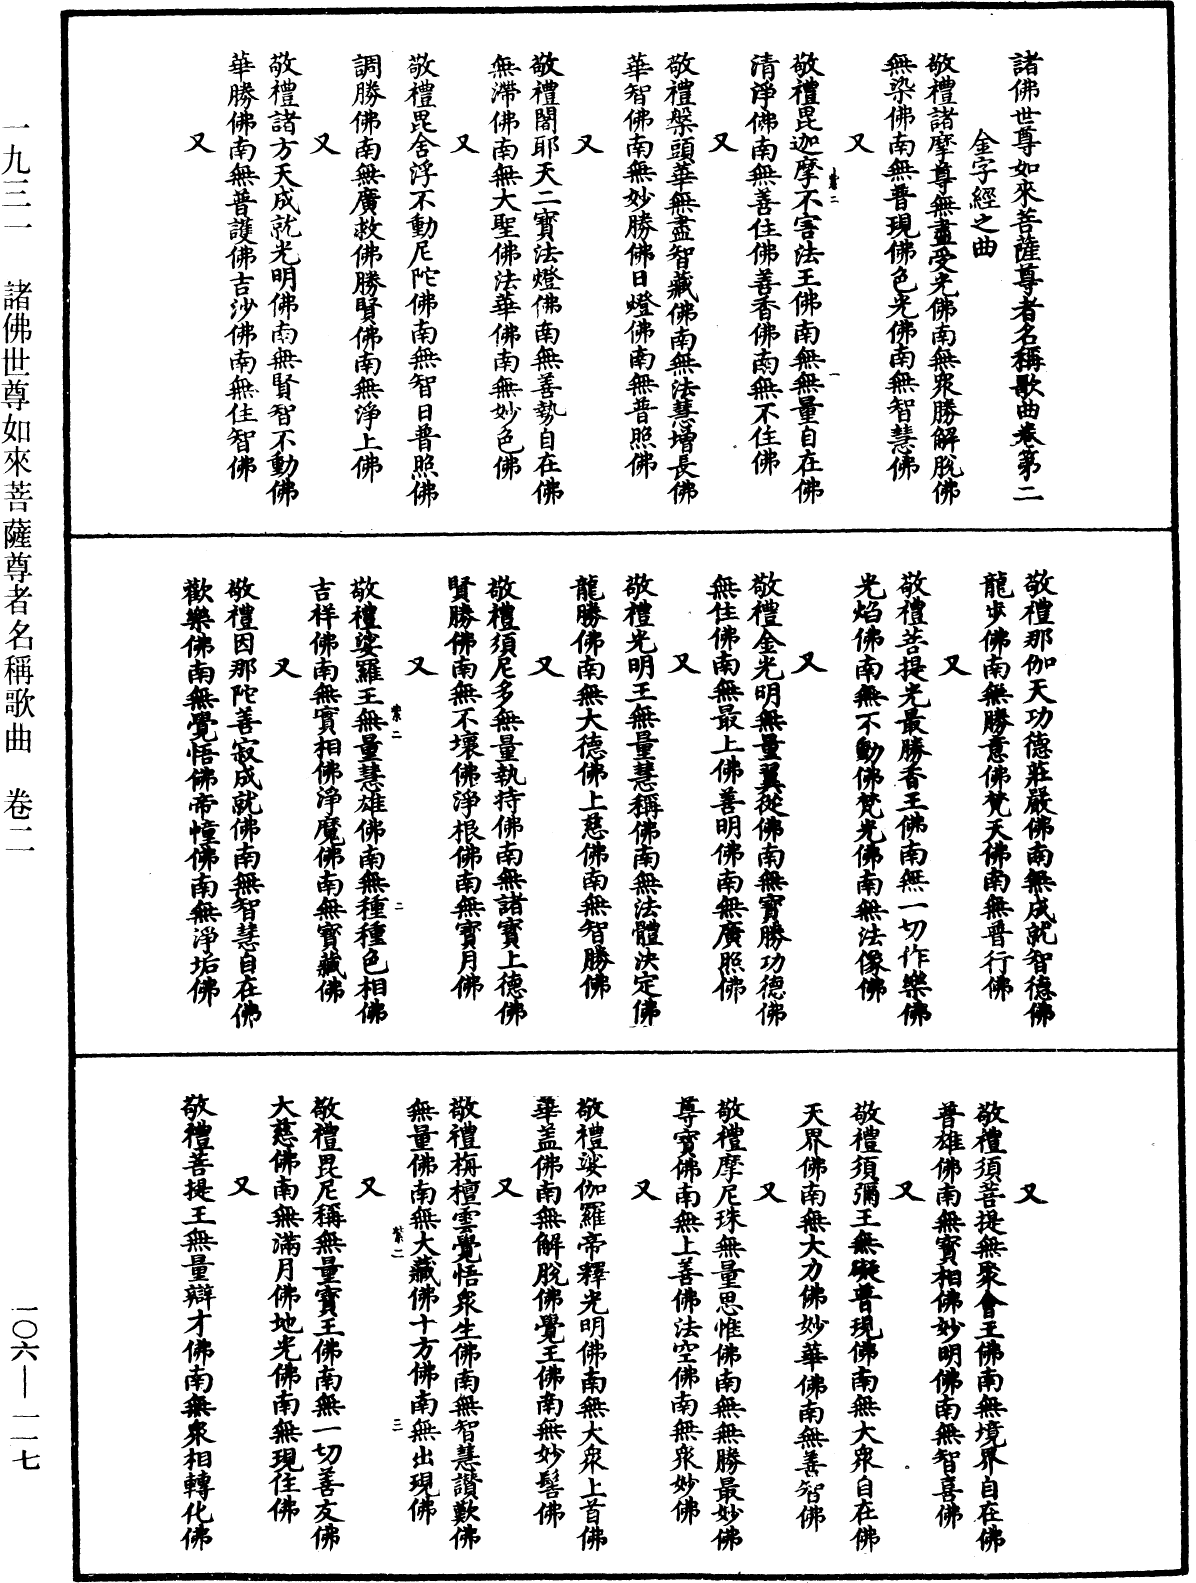 諸佛世尊如來菩薩尊者名稱歌曲卷第二
金字經之曲
敬禮諸摩尊無盡受光佛南無眾勝解脫佛
無染佛南無普現佛色光佛南無智慧佛
又
敬禮毘迦摩不害法王佛南無無量自在佛
清淨佛南無善住佛善香佛南無不住佛
又
敬禮槃頭華無盡智藏佛南無法慧增長佛
華智佛南無妙勝佛日燈佛南無普照佛
又
敬禮闍耶天二寶法燈佛南無善執自在佛
無滯佛南無大聖佛法華佛南無妙色佛
又
敬禮毘舍浮不動尼陀佛南無智日普照佛
調勝佛南無廣救佛勝賢佛南無淨上佛
又
敬禮諸方天成就光明佛南無賢智不動佛
華勝佛南無普護佛吉沙佛南無住智佛
又
敬禮那伽天功德莊嚴佛南無成就智德佛
龍步佛南無勝意佛梵天佛南無普行佛
又
敬禮菩提光最勝香王佛南無一切作樂佛
光焰佛南無不動佛梵光佛南無法像佛
又
敬禮金光明無量翼從佛南無寶勝功德佛
無住佛南無最上佛善明佛南無廣照佛
又
敬禮光明王無量慧稱佛南無法體決定佛
龍勝佛南無大德佛上慈佛南無智勝佛
又
敬禮須尼多無量執持佛南無諸寶上德佛
賢勝佛南無不壞佛淨根佛南無寶月佛
又
敬禮娑羅王無量慧雄佛南無種種色相佛
吉祥佛南無實相佛淨魔佛南無寶藏佛
又
敬禮因那陀善寂成就佛南無智慧自在佛
歡樂佛南無覺悟佛帝幢佛南無淨垢佛
又
敬禮須菩提無聚會王佛南無境界自在佛
普雄佛南無寶相佛妙明佛南無智喜佛
又
敬禮須彌王無礙普現佛南無大眾自在佛
天界佛南無大力佛妙華佛南無善智佛
又
敬禮摩尼珠無量思惟佛南無無勝最妙佛
尊寶佛南無上善佛法空佛南無眾妙佛
又
敬禮娑伽羅帝釋光明佛南無大眾上首佛
華蓋佛南無解脫佛覺王佛南無妙髻佛
又
敬禮栴檀雲覺悟眾生佛南無智慧讚歎佛
無量佛南無大藏佛十方佛南無出現佛
又
敬禮毘尼稱無量寶王佛南無一切善友佛
大慈佛南無滿月佛地光佛南無現住佛
又
敬禮菩提王無量辯才佛南無眾相轉化佛
紫二
一
紫二
二
紫二
三
一九三一 諸佛世尊如來菩薩尊者名稱歌曲 卷二
一〇六—一一七